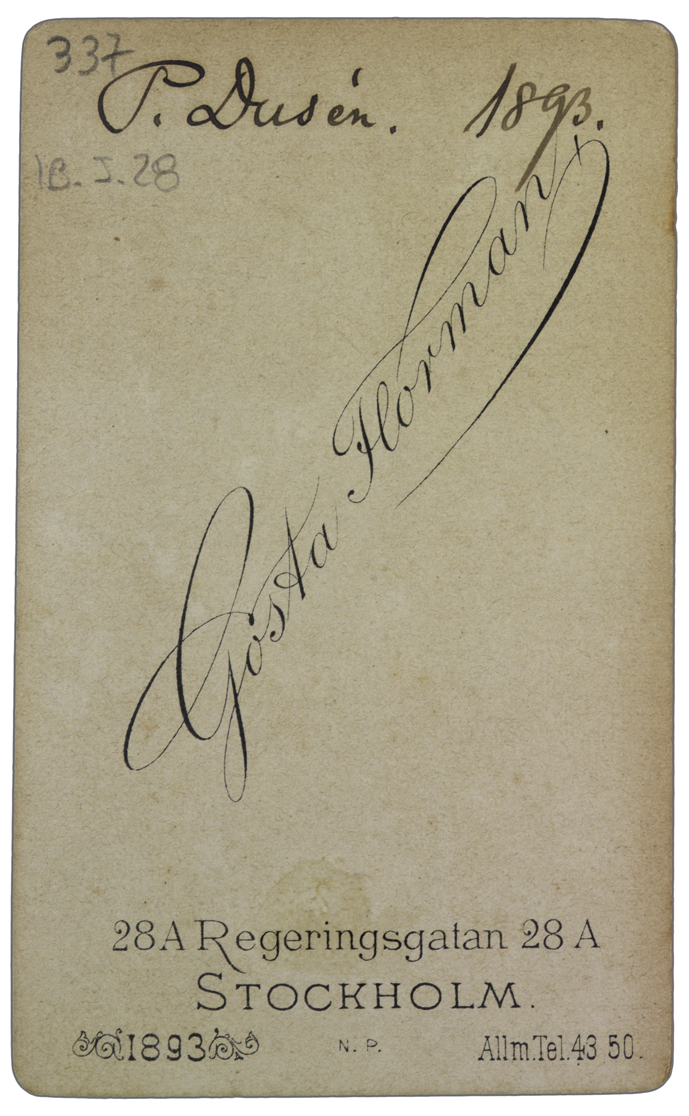 337
P. Dusén. 1893.
IB. I. 28
Gösta Florman
28A Regeringsgatan 28 A
STOCKHOLM.
1893 N. P. Allm. Tel. 43 50.